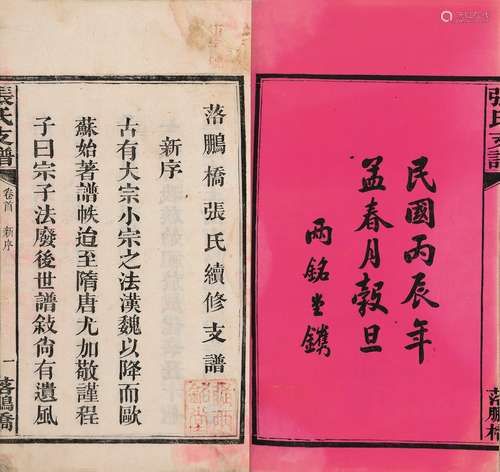 民國丙辰年
孟春月穀旦
兩銘堂鐫
張氏支譜
落鵬橋
落鵬橋張氏續修支譜
新序
古有大宗小宗之法漢魏以降而歐
蘇始著譜帙迨至隋唐尤加敬謹程
子曰宗子法廢後世譜敍尙有遺風
張氏支譜
卷首 新序
一
落鵬橋